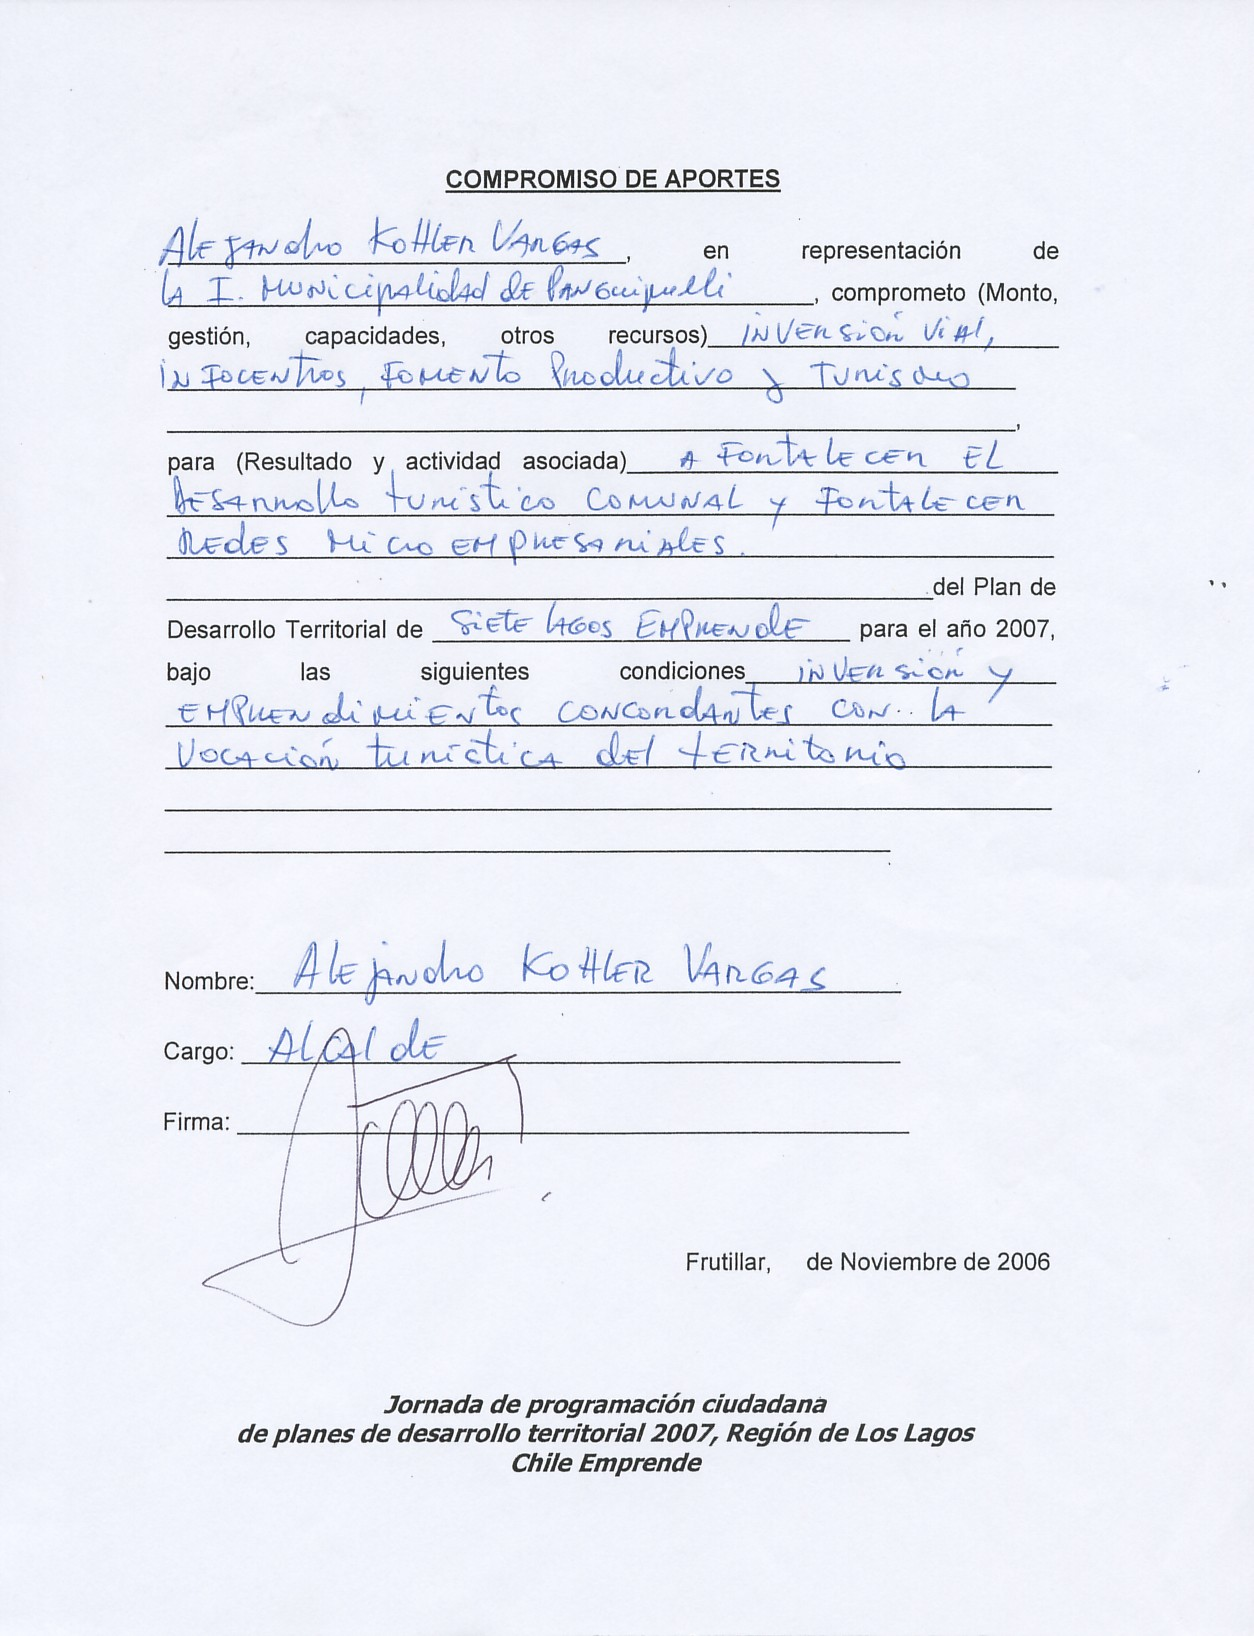 COMPROMISO DE APORTES
Alejandro Kohler Vargas, en representación de
la I. Municipalidad de Panguipulli, comprometo (Monto,
gestión, capacidades, otros recursos) inversión vial,
infocentros, fomento productivo y turismo
,
para (Resultado y actividad asociada) a fortalecer el
desarrollo turístico comunal y fortalecer
redes micro empresariales.
del Plan de
Desarrollo Territorial de Siete Lagos Emprende para el año 2007,
bajo las siguientes condiciones inversión y
emprendimientos concordantes con la
vocación turística del territorio
Nombre: Alejandro Kohler Vargas
Cargo: Alcalde
Firma:
Frutillar, de Noviembre de 2006
Jornada de programación ciudadana
de planes de desarrollo territorial 2007, Región de Los Lagos
Chile Emprende